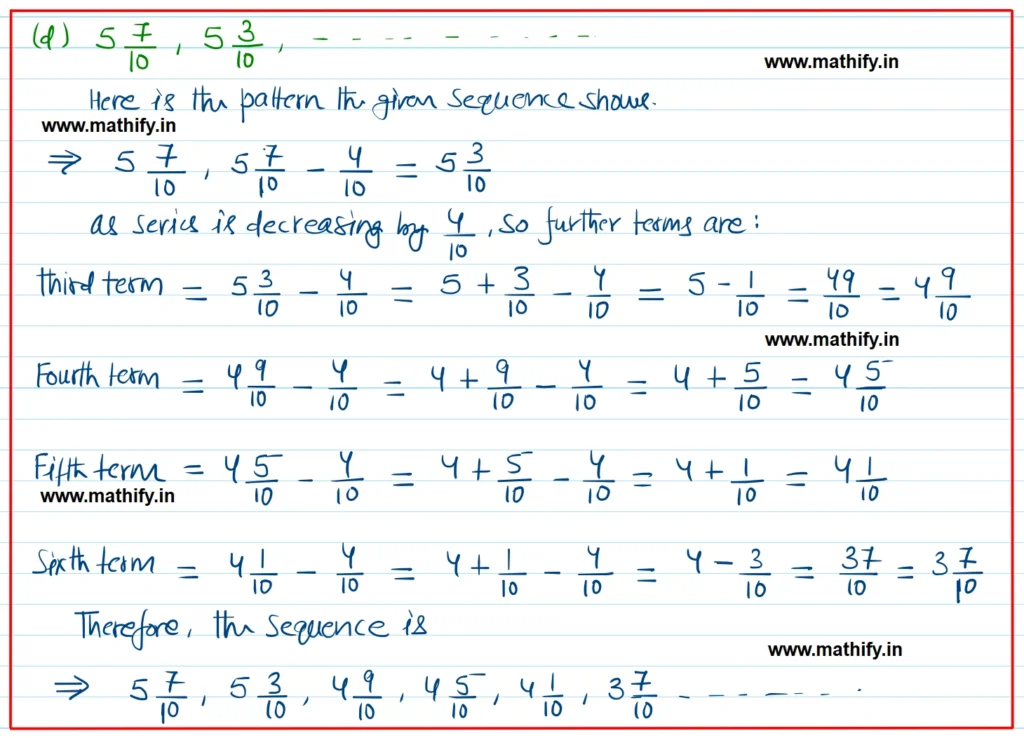 (d) 5 7/10 , 5 3/10 , - - - - - - - - -
www.mathify.in
Here is the pattern the given sequence shows.
www.mathify.in
⇒ 5 7/10 , 5 7/10 - 4/10 = 5 3/10
as series is decreasing by 4/10 , so further terms are :
third term = 5 3/10 - 4/10 = 5 + 3/10 - 4/10 = 5 - 1/10 = 49/10 = 4 9/10
www.mathify.in
Fourth term = 4 9/10 - 4/10 = 4 + 9/10 - 4/10 = 4 + 5/10 = 4 5/10
Fifth term = 4 5/10 - 4/10 = 4 + 5/10 - 4/10 = 4 + 1/10 = 4 1/10
www.mathify.in
Sixth term = 4 1/10 - 4/10 = 4 + 1/10 - 4/10 = 4 - 3/10 = 37/10 = 3 7/10
Therefore, the sequence is
www.mathify.in
⇒ 5 7/10 , 5 3/10 , 4 9/10 , 4 5/10 , 4 1/10 , 3 7/10 - - - - - - - .